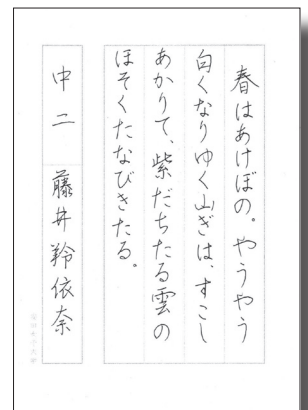 春はあけぼの。やうやう
白くなりゆく山ぎは、すこし
あかりて、紫だちたる雲の
ほそくたなびきたる。
中二 藤井羚依奈